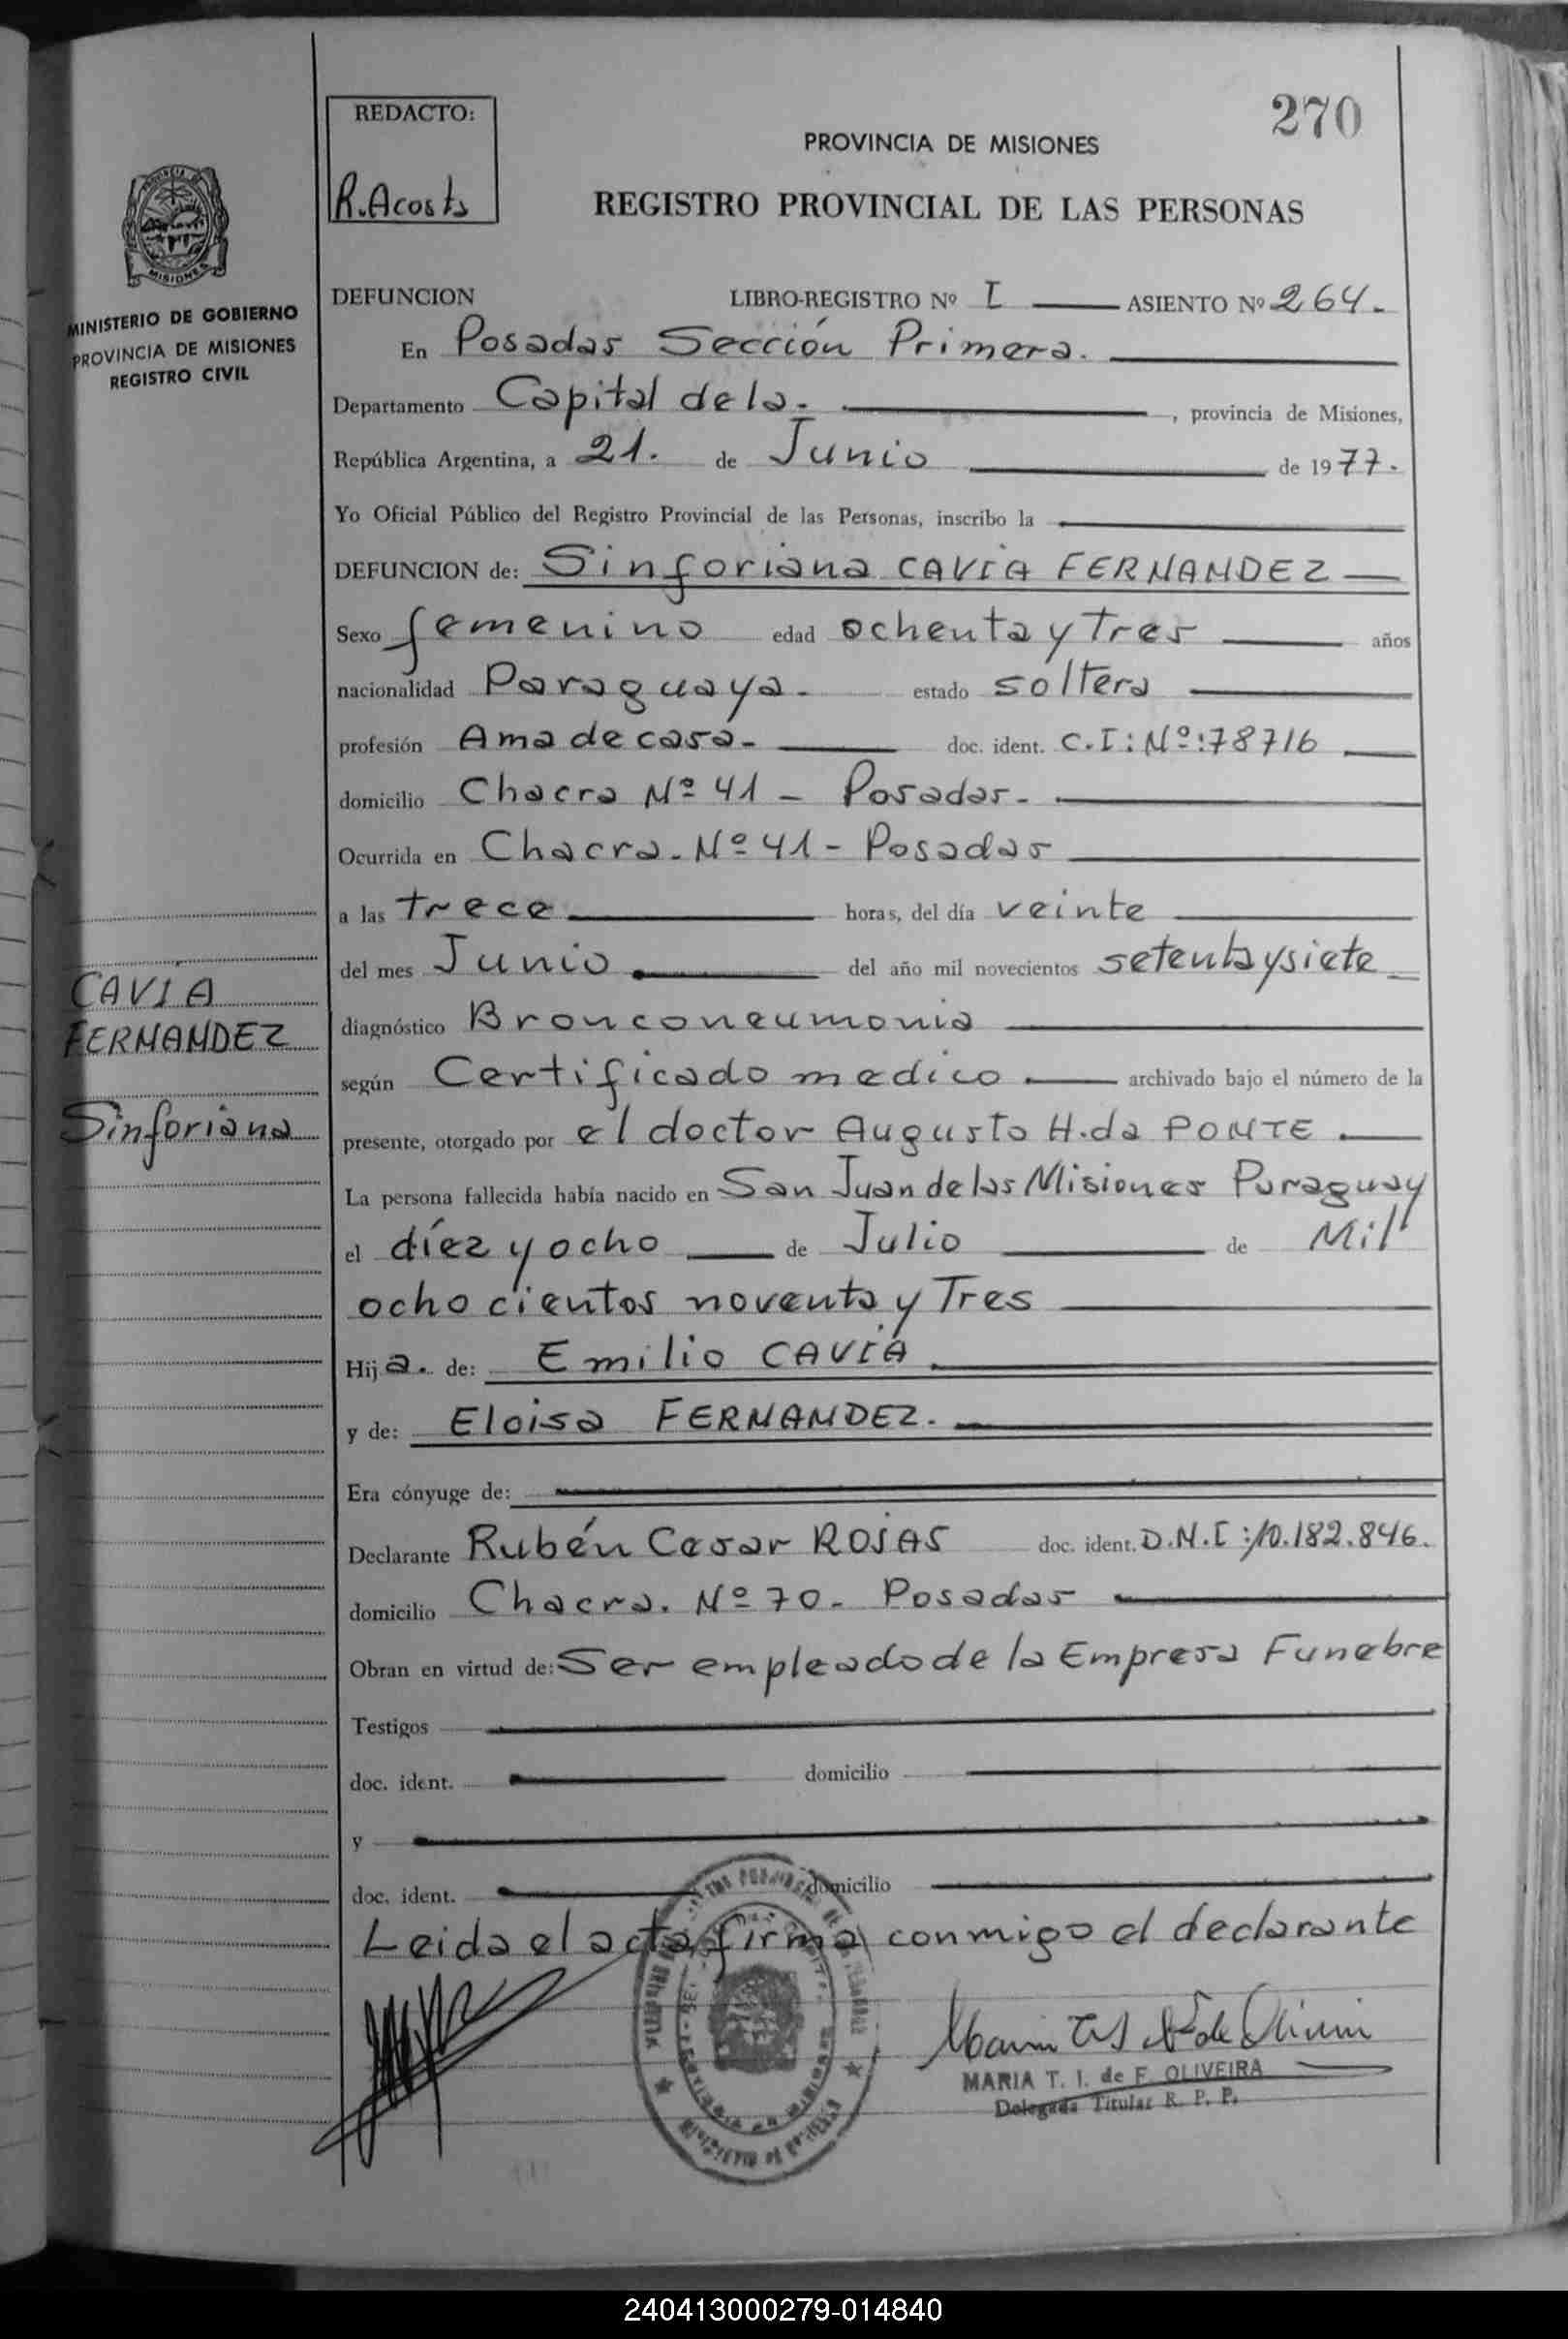 270
REDACTO:
R. Acosta
PROVINCIA DE MISIONES
REGISTRO PROVINCIAL DE LAS PERSONAS
MISIONES
MINISTERIO DE GOBIERNO
PROVINCIA DE MISIONES
REGISTRO CIVIL
DEFUNCION LIBRO-REGISTRO Nº I ASIENTO Nº 264.
En Posadas Sección Primera.
Departamento Capital de la. , provincia de Misiones,
República Argentina, a 21. de Junio de 1977.
Yo Oficial Público del Registro Provincial de las Personas, inscribo la
DEFUNCION de: Sinforiana CAVIA FERNANDEZ
Sexo femenino edad ochenta y Tres años
nacionalidad Paraguaya. estado soltera
profesión Ama de casa. doc. ident. C.I: Nº:78716
domicilio Chacra Nº 41 - Posadas.
Ocurrida en Chacra. Nº 41 - Posadas
a las trece horas, del día veinte
del mes Junio del año mil novecientos setenta y siete
diagnóstico Bronconeumonia
según Certificado medico archivado bajo el número de la
presente, otorgado por el doctor Augusto H. da PONTE
La persona fallecida había nacido en San Juan de las Misiones Paraguay
el díez y ocho de Julio de Mil
ocho cientos noventa y Tres
Hija. de: Emilio CAVIA
y de: Eloisa FERNANDEZ.
Era cónyuge de:
Declarante Rubén Cesar ROJAS doc. ident. D.N.I:10.182.846.
domicilio Chacra. Nº 70. Posadas
Obran en virtud de: Ser empleado de la Empresa Funebre
Testigos
doc. ident. domicilio
y
doc. ident. domicilio
Leida el acta firma conmigo el declarante
CAVIA
FERNANDEZ
Sinforiana
MARIA T. I. de F. OLIVEIRA
Delegada Titular R. P. P.
240413000279-014840